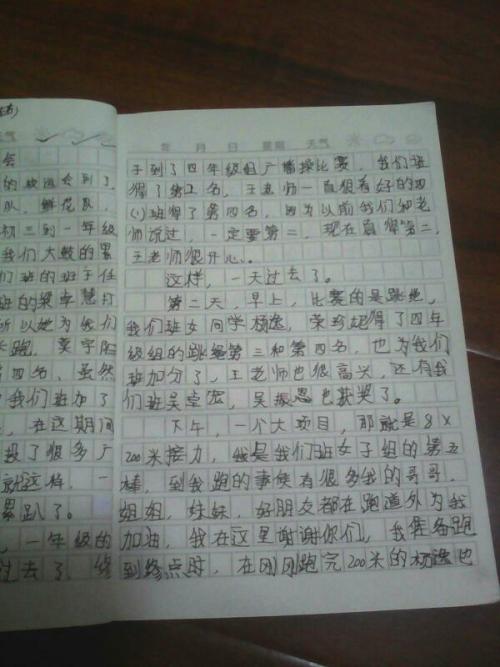 气
会
的欢运会到了
队，鲜花队，
初三到一年级
我们大鼓的累
们班的班子任
班的梁宇慧打
所以她为我们
长跑，莫宇阳
第四名、虽然
我们班加了
，在这期间
投了很多广
就这样，一
累趴了。
，一年级的
过去了，终
年 月 日 星期 天气
于到了四年级组广播操比赛，我们班
得了第二名，王老师一直很看好的四
(1)班得了第四名，因为以前我们和老
师说过，一定要第二，现在真得第二，
王老师很开心。
这样，一天过去了。
第二天，早上，比赛的是跳绳，
我们班女同学杨逸，荣珍起得了四年
级组的跳绳第三和第四名，也为我们
班加分了，王老师也很高兴，还有我
们班吴堂宏，吴振恩也获奖了。
下午，一个大项目，那就是8×
200米接力，我是我们班女子组的第五
棒，到我跑的事候有很多我的哥哥，
姐姐，妹妹，好朋友都在跑道外为我
加油，我在这里谢谢你们，我准备跑
到终点时，在刚刚跑完200米的杨逸也